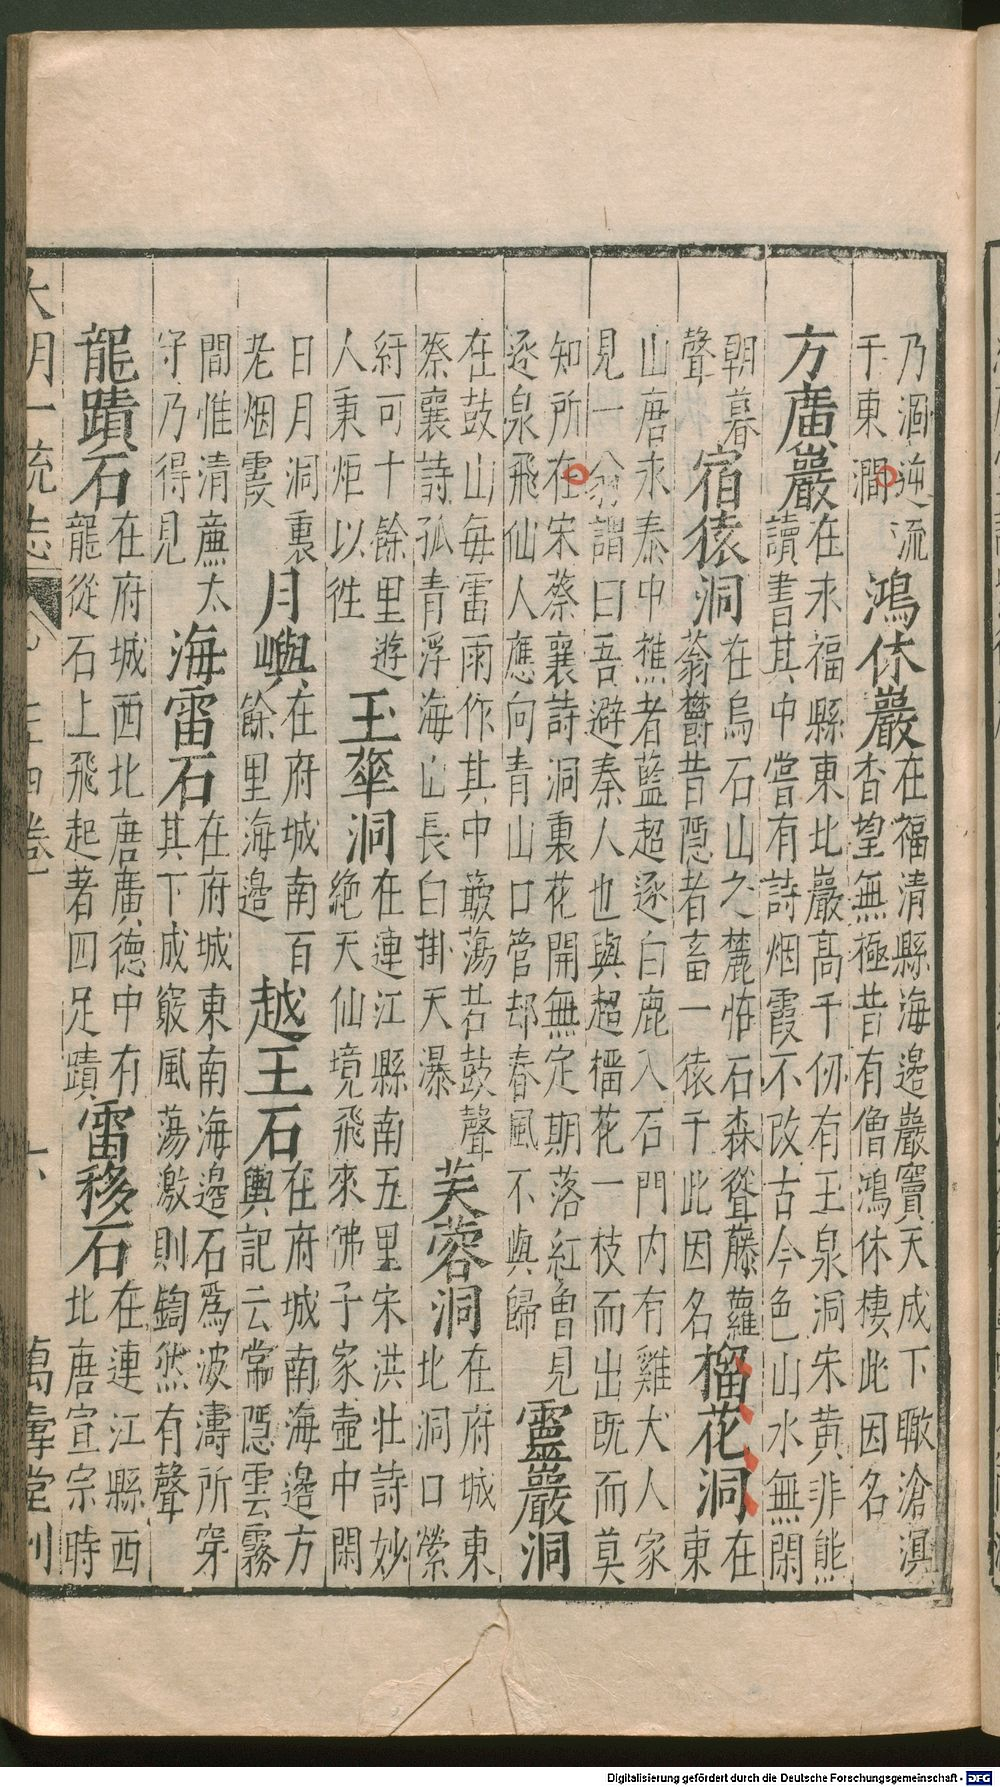 乃洄㳂逆流
于東㵎
鴻休巖
在福清縣海邊巖竇天成下瞰滄溟
杳望無極昔有僧鴻休棲此因名
方廣巖
在永福縣東北巖高千仞有玉泉洞宋黄非熊
讀書其中嘗有詩烟霞不改古今色山水無閑
朝暮
聲
宿猿洞
在烏石山之麓怪石森聳藤蘿
蓊欝昔隠者畜一猿于此因名
榴花洞
在
東
山唐永泰中樵者藍超逐白鹿入石門内有雞犬人家
見一翁謂曰吾避秦人也與超榴花一枝而出旣而莫
知所在宋蔡襄詩洞裏花開無定期落紅曽見
逐泉飛仙人應向青山口管却春風不與歸
靈巖洞
在鼓山每雷雨作其中簸蕩若鼓聲
蔡襄詩孤青浮海山長白掛天瀑
芙蓉洞
在府城東
北洞口縈
紆可十餘里遊
人秉炬以徃
玉華洞
在連江縣南五里宋洪壮詩妙
絶天仙境飛來佛子家壷中閑
日月洞裏
老烟霞
月嶼
在府城南百
餘里海邊
越王石
在府城南海邊方
輿記云常隠雲霧
間惟清廉太
守乃得見
海雷石
在府城東南海邊石爲波濤所穿
其下成竅風蕩激則鍧然有聲
龍蹟石
在府城西北唐廣德中有
龍從石上飛起著四足蹟
雷移石
在連江縣西
北唐宣宗時
大明一統志
七十四卷
六
萬壽堂刊
Digitalisierung gefördert durch die Deutsche Forschungsgemeinschaft - DFG